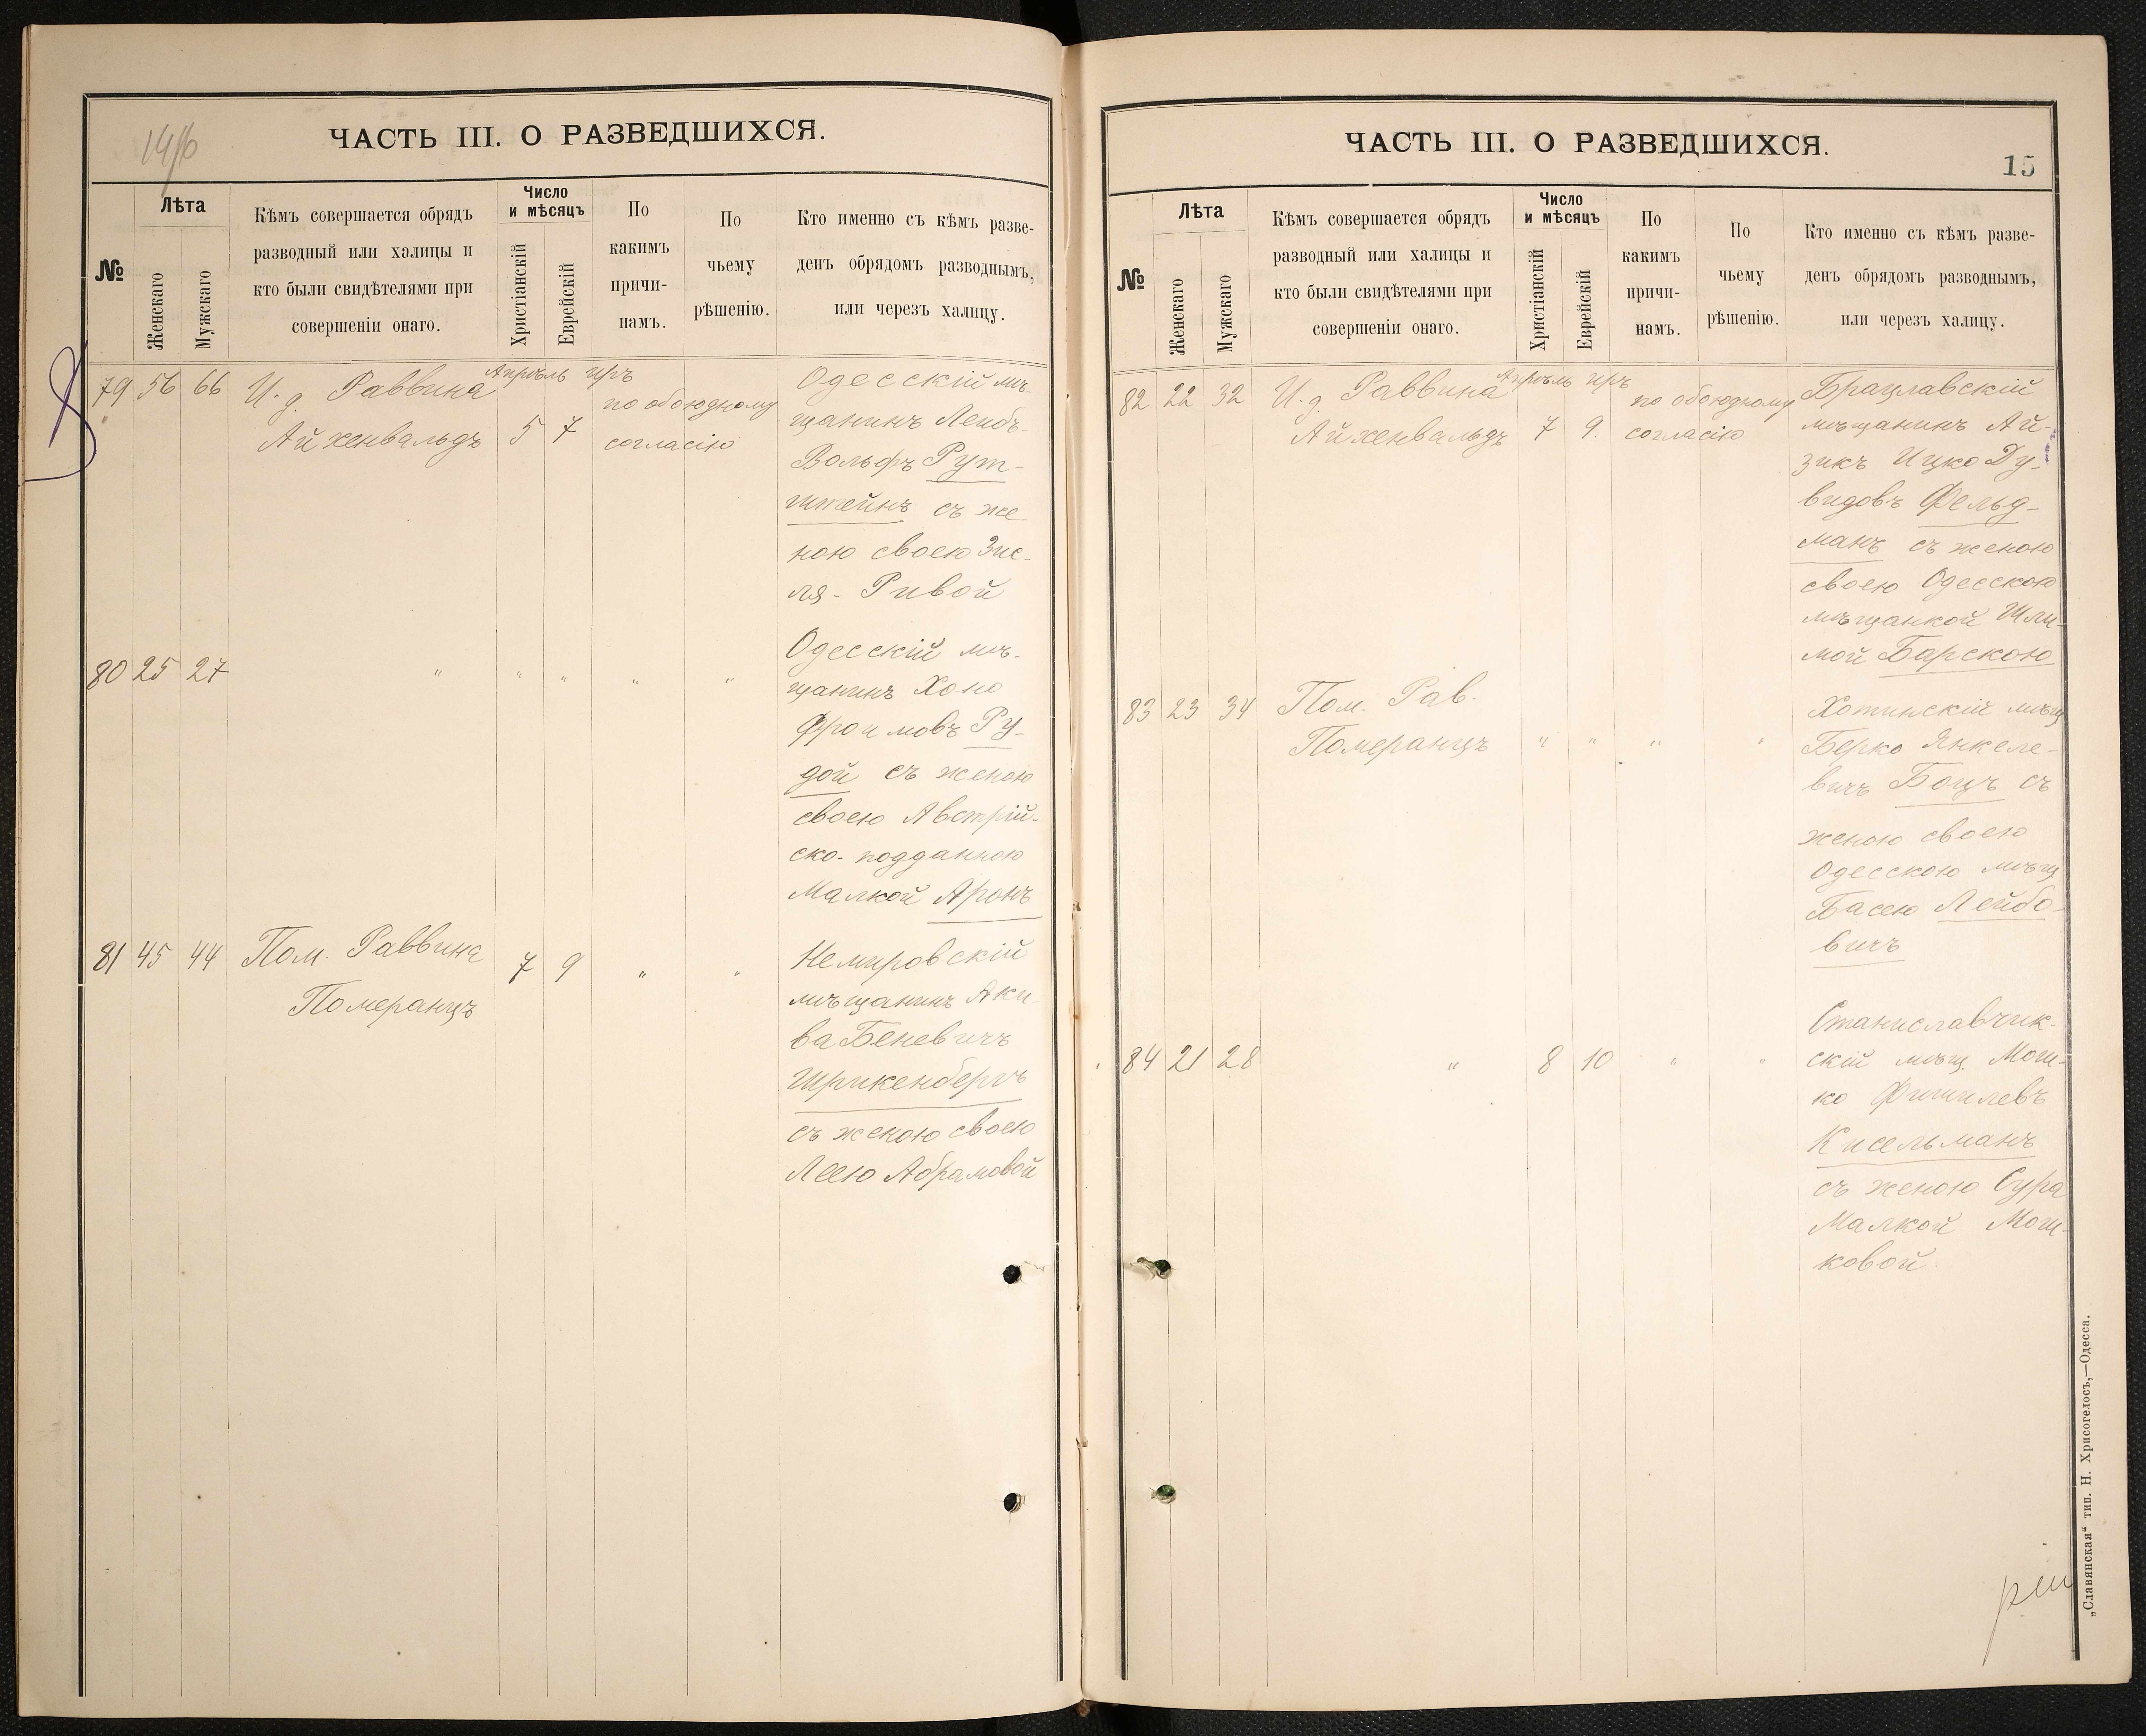 ЧАСТЬ III. О РАЗВЕДШИХСЯ.
№
Лѣта
Женскаго
Мужскаго
Кѣмъ совершается обрядъ
разводный или халицы и
кто были свидѣтелями при
совершеніи онаго.
Число
и мѣсяцъ
Христіанскій
Еврейскій
По
какимъ
причи-
намъ.
По
чьему
рѣшенію.
Кто именно съ кѣмъ разве-
денъ обрядомъ разводнымъ,
или черезъ халицу.
79 56 66 И. д. Раввина
Айхенвальдъ
Апрѣль Иръ
5 7
по обоюдному
согласію
Одесскій мѣ-
щанинъ Лейбъ-
Вольфъ Рут-
штейнъ съ же-
ною своею Зис-
ля-Ривой
80 25 27 " " " " "
Одесскій мѣ-
щанинъ Хоно
Фроимовъ Ру-
дой съ женою
своею Австрій-
ско-подданною
Малкой Аронъ
81 45 44 Пом. Раввина
Померанцъ
7 9 " "
Немировскій
мѣщанинъ Аки-
ва Беневичъ
Шрикенбергъ
съ женою своею
Леею Абрамовой
ЧАСТЬ III. О РАЗВЕДШИХСЯ.
15
№
Лѣта
Женскаго
Мужскаго
Кѣмъ совершается обрядъ
разводный или халицы и
кто были свидѣтелями при
совершеніи онаго.
Число
и мѣсяцъ
Христіанскій
Еврейскій
По
какимъ
причи-
намъ.
По
чьему
рѣшенію.
Кто именно съ кѣмъ разве-
денъ обрядомъ разводнымъ,
или черезъ халицу.
82 22 32 И. д. Раввина
Айхенвальдъ
Апрѣль Иръ
7 9.
по обоюдному
согласію
Брацлавскій
мѣщанинъ Ай-
зикъ Ицко Ду-
видовъ Фельд-
манъ съ женою
своею Одесскою
мѣщанкой Шли-
мой Барскою
83 23 34 Пом. Рав.
Померанцъ " " " "
Хотинскій мѣщ
Берко Янкеле-
вичъ Боцъ съ
женою своею
Одесскою мѣщ
Басею Лейбо-
вичъ
84 21 28 " 8 10 " "
Станиславчик-
скій мѣщ. Мош-
ко Фишилевъ
Кисельманъ
съ женою Сура
Малкой Мош-
ковой.
„Славянская“ тип. Н. Хрисогелосъ,—Одесса.